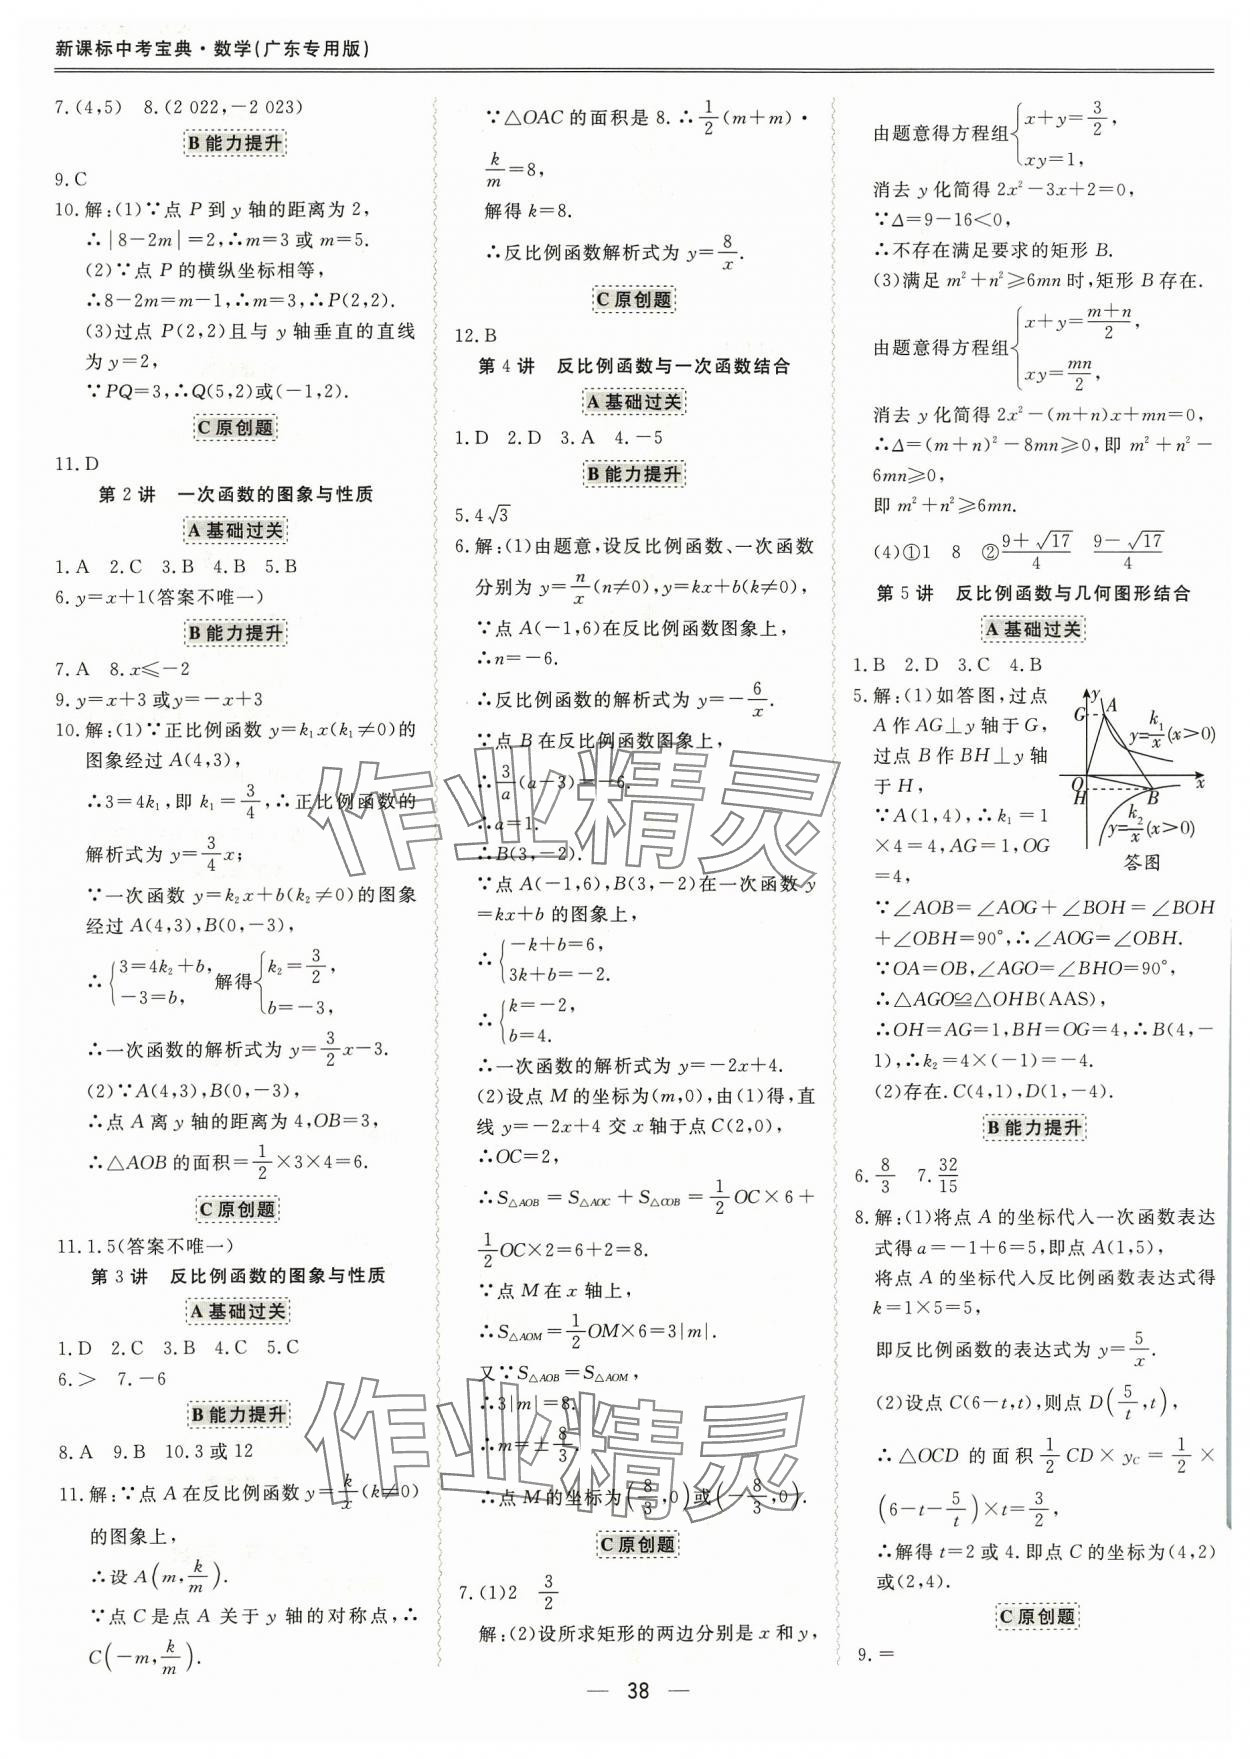 新课标中考宝典·数学(广东专用版)
7.(4,5)　8.(2 022,-2 023)
B 能力提升
9.C
10.解:(1)∵点 P 到 y 轴的距离为 2,
∴|8-2m|=2,∴m=3 或 m=5.
(2)∵点 P 的横纵坐标相等,
∴8-2m=m-1,∴m=3,∴P(2,2).
(3)过点 P(2,2)且与 y 轴垂直的直线
为 y=2,
∵PQ=3,∴Q(5,2)或(-1,2).
C 原创题
11.D
第 2 讲　一次函数的图象与性质
A 基础过关
1.A　2.C　3.B　4.B　5.B
6.y=x+1(答案不唯一)
B 能力提升
7.A　8.x≤-2
9.y=x+3 或 y=-x+3
10.解:(1)∵正比例函数 y=k₁x(k₁≠0)的
图象经过 A(4,3),
∴3=4k₁,即 k₁=3/4,∴正比例函数的
解析式为 y=3/4x;
∵一次函数 y=k₂x+b(k₂≠0)的图象
经过 A(4,3),B(0,-3),
∴{3=4k₂+b, -3=b, 解得{k₂=3/2, b=-3,
∴一次函数的解析式为 y=3/2x-3.
(2)∵A(4,3),B(0,-3),
∴点 A 离 y 轴的距离为 4,OB=3,
∴△AOB 的面积=1/2×3×4=6.
C 原创题
11.1.5(答案不唯一)
第 3 讲　反比例函数的图象与性质
A 基础过关
1.D　2.C　3.B　4.C　5.C
6.>　7.-6
B 能力提升
8.A　9.B　10.3 或 12
11.解:∵点 A 在反比例函数 y=k/x(k≠0)
的图象上,
∴设 A(m,k/m).
∵点 C 是点 A 关于 y 轴的对称点,∴
C(-m,k/m).
∵△OAC 的面积是 8.∴1/2(m+m)·
k/m=8,
解得 k=8.
∴反比例函数解析式为 y=8/x.
C 原创题
12.B
第 4 讲　反比例函数与一次函数结合
A 基础过关
1.D　2.D　3.A　4.-5
B 能力提升
5.4√3
6.解:(1)由题意,设反比例函数、一次函数
分别为 y=n/x(n≠0),y=kx+b(k≠0),
∵点 A(-1,6)在反比例函数图象上,
∴n=-6.
∴反比例函数的解析式为 y=-6/x.
∵点 B 在反比例函数图象上,
∴3/a(a-3)=-6.
∴a=1.
∴B(3,-2).
∵点 A(-1,6),B(3,-2)在一次函数 y
=kx+b 的图象上,
∴{-k+b=6, 3k+b=-2.
∴{k=-2, b=4.
∴一次函数的解析式为 y=-2x+4.
(2)设点 M 的坐标为(m,0),由(1)得,直
线 y=-2x+4 交 x 轴于点 C(2,0),
∴OC=2,
∴S△AOB=S△AOC+S△COB=1/2OC×6+
1/2OC×2=6+2=8.
∵点 M 在 x 轴上,
∴S△AOM=1/2OM×6=3|m|.
又∵S△AOB=S△AOM,
∴3|m|=8.
∴m=±8/3.
∴点 M 的坐标为(8/3,0)或(-8/3,0).
C 原创题
7.(1)2　3/2
解:(2)设所求矩形的两边分别是 x 和 y,
由题意得方程组{x+y=3/2, xy=1,
消去 y 化简得 2x²-3x+2=0,
∵Δ=9-16<0,
∴不存在满足要求的矩形 B.
(3)满足 m²+n²≥6mn 时,矩形 B 存在.
由题意得方程组{x+y=(m+n)/2, xy=mn/2,
消去 y 化简得 2x²-(m+n)x+mn=0,
∴Δ=(m+n)²-8mn≥0,即 m²+n²-
6mn≥0,
即 m²+n²≥6mn.
(4)①1　8　②(9+√17)/4　(9-√17)/4
第 5 讲　反比例函数与几何图形结合
A 基础过关
1.B　2.D　3.C　4.B
5.解:(1)如答图,过点
A 作 AG⊥y 轴于 G,
过点 B 作 BH⊥y 轴
于 H,
∵A(1,4),∴k₁=1
×4=4,AG=1,OG
=4,
y
G
A
y=k₁/x(x>0)
O
H
B
x
y=k₂/x(x>0)
答图
∵∠AOB=∠AOG+∠BOH=∠BOH
+∠OBH=90°,∴∠AOG=∠OBH.
∵OA=OB,∠AGO=∠BHO=90°,
∴△AGO≌△OHB(AAS),
∴OH=AG=1,BH=OG=4,∴B(4,-
1),∴k₂=4×(-1)=-4.
(2)存在.C(4,1),D(1,-4).
B 能力提升
6.8/3　7.32/15
8.解:(1)将点 A 的坐标代入一次函数表达
式得 a=-1+6=5,即点 A(1,5),
将点 A 的坐标代入反比例函数表达式得
k=1×5=5,
即反比例函数的表达式为 y=5/x.
(2)设点 C(6-t,t),则点 D(5/t,t),
∴△OCD 的面积1/2CD×y_C=1/2×
(6-t-5/t)×t=3/2,
∴解得 t=2 或 4.即点 C 的坐标为(4,2)
或(2,4).
C 原创题
9.=
— 38 —
作业精灵
作业精灵